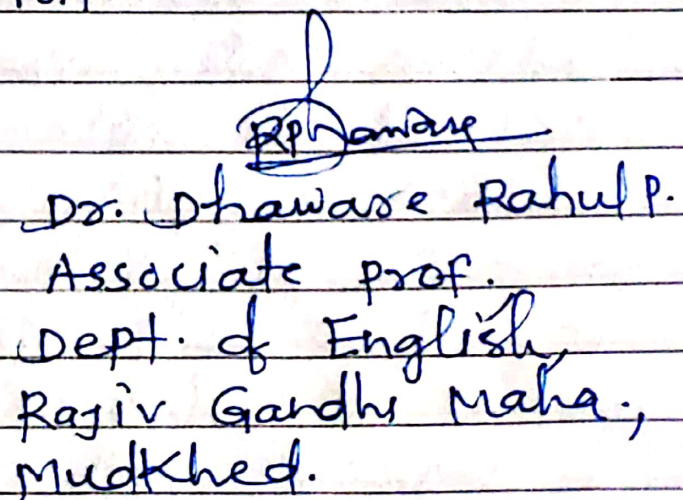 RPDhaware
Dr. Dhaware Rahul P.
Associate prof.
Dept. of English,
Rajiv Gandhi Maha.,
Mudkhed.